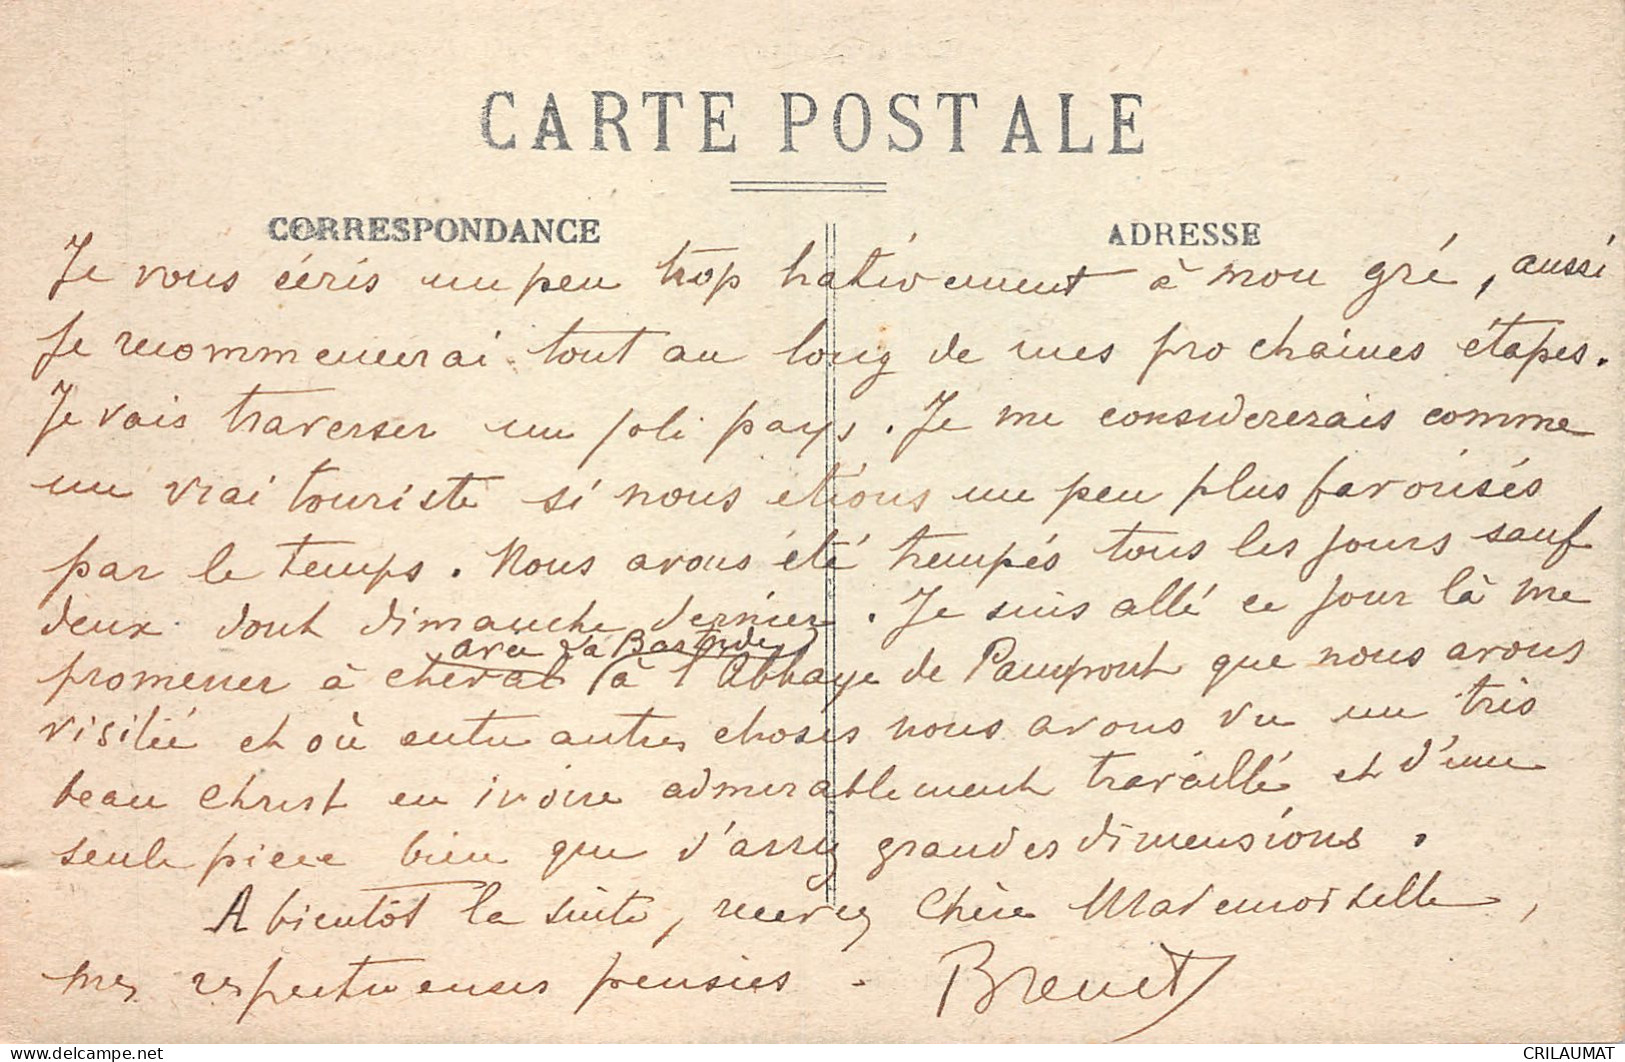 CARTE POSTALE
CORRESPONDANCE
ADRESSE
Je vous écris un peu trop hativement à mon gré, aussi
je recommencerai tout au long de mes prochaines étapes.
Je vais traverser un joli pays. Je me considererais comme
un vrai touriste si nous étions un peu plus favorisés
par le temps. Nous avons été trempés tous les jours sauf
deux dont dimanche dernier. Je suis allé ce jour là me
avec La
promener à cheval à l'Abbaye de Paimpont que nous avons
visitée et où entre autres choses nous avons vu un très
beau Christ en ivoire admirablement travaillé et d'une
seule piece bien que d'assez grandes dimensions.
A bientôt la suite, recevez Chère Mademoiselle,
mes respectueuses pensées. Brenet
CRILAUMAT